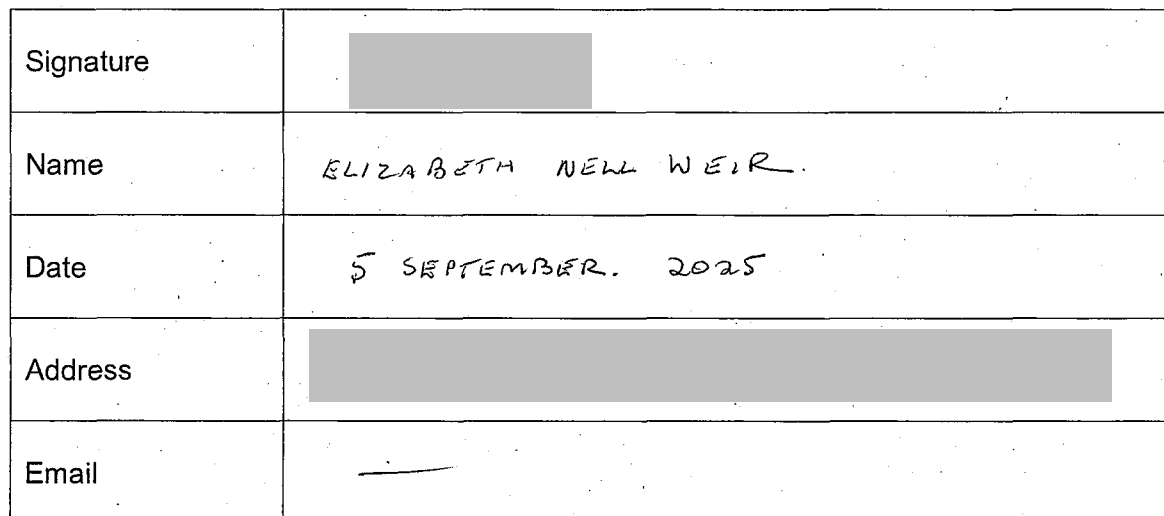 Signature
Name ELIZABETH NELL WEIR.
Date 5 SEPTEMBER. 2025
Address
Email —